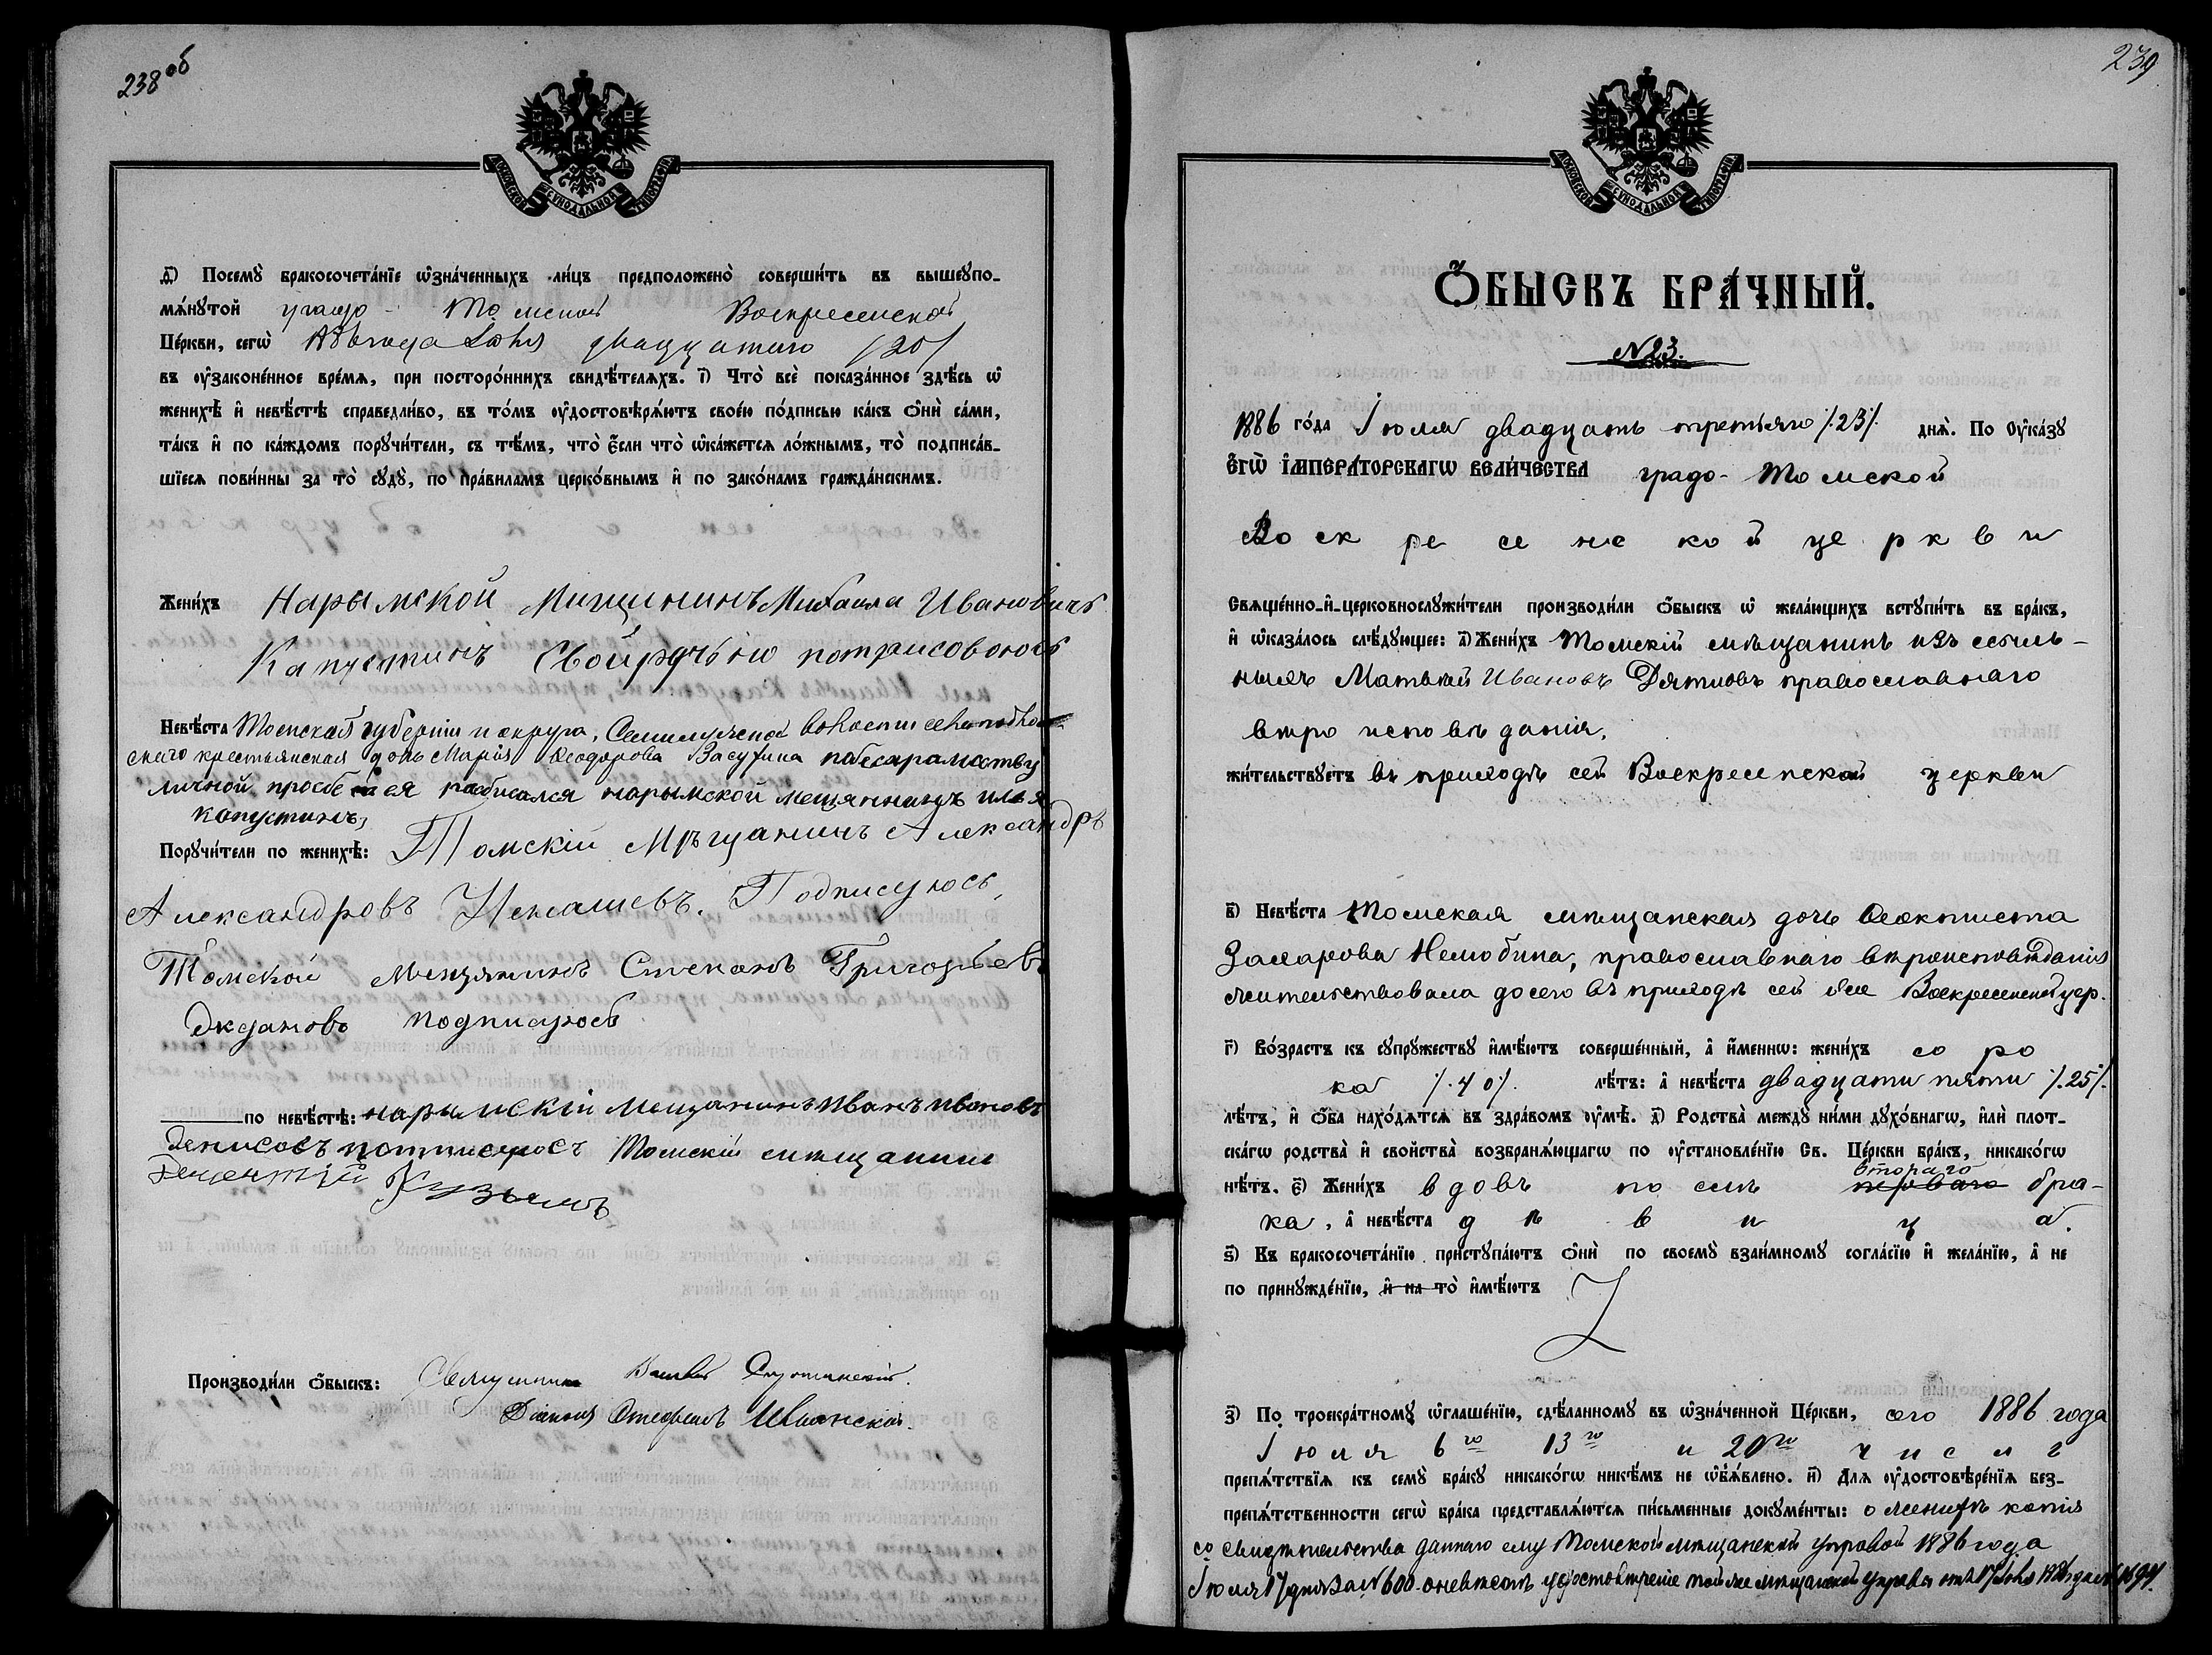 238 об
МОСКОВСКОЙ СѴНОДАЛЬНОЙ ТИПОГРАФІИ
д҃) Посемꙋ̀ бракосочета́нїе ѡ҆зна́ченныхъ ли́цъ предположено̀ соверши́ть въ вышеꙋпо-
мѧ́нꙋтой градо - Томской Воскресенской
Це́ркви, сегѡ̀ двадцатаго /20/
въ ᲂу҆законе́нное вре́мѧ, при посторо́ннихъ свидѣ́телѧхъ. і҃) Что̀ всѐ пока́занное здѣ́сь ѡ҆
женихѣ̀ и҆ невѣ́стѣ справедли́во, въ то́мъ ᲂу҆достовѣрѧ́ютъ свое́ю по́дписью ка́къ ѻ҆нѝ са́ми,
та́къ и҆ по ка́ждомъ порꙋчи́тели, съ тѣ́мъ, что̀ є҆́сли что̀ ѡ҆ка́жетсѧ ло́жнымъ, то̀ подписа́в-
шїесѧ пови́нны за то̀ сꙋдꙋ̀, по пра́виламъ церко́внымъ и҆ по зако́намъ гражда́нскимъ.
Жени́хъ Нарымской Мищининъ Михаила Ивановичъ
Капустинъ Свойрочью потписовоюсь
Невѣ́ста Томской губерніи и округа, Семилужной волости
скаго крестьянская дочь Марія Ѳеодорова Засухина
личной просбе ея росписался нарымской мещянинъ илья
капустинъ,
Порꙋчи́тели по женихѣ̀: Томскій Мѣщанинъ Александръ
Александровъ Ненашевъ. Подписуюсь,
Томской мещянинъ Степанъ Григорьевъ
Ождановъ подписуюсь
по невѣ́стѣ: нарымскій Мещанинъ Иванъ ивановъ
Денисовъ потписуюс Томскій мѣщанин
Производи́ли ѻ҆́быскъ: Священникъ
Діаконъ Стефанъ Ивановскій.
239
МОСКОВСКОЙ СѴНОДАЛЬНОЙ ТИПОГРАФІИ
Ѻ҆́БЫСКЪ БРА́ЧНЫЙ.
№23.
1886 го́да Іюля двадцать третьяго /.23/. днѧ̀. По Оу҆ка́зꙋ
Є҆ГѠ̀ І҆МПЕРА́ТОРСКАГѠ ВЕЛИ́ЧЕСТВА градо - Томской
Воскресенской церкви
Свѧще́нно-и҆-церковнослꙋжи́тели производи́ли ѻ҆́быскъ ѡ҆ жела́ющихъ встꙋпи́ть въ бра́къ,
и҆ ѡ҆каза́лось слѣ́дꙋющее: а҃) Жени́хъ Томскій мѣщанинъ изъ ссыль-
ныхъ Матвѣй Ивановъ Дятловъ православнаго
вѣро исповѣданія,
жи́тельствꙋетъ въ приходѣ сей Воскресенской церкви
в҃) Невѣ́ста Томская мѣщанская дочь Ѳеоктиста
Захарова Нелюбина, православнаго вѣроисповѣданія
жительствовала досего въ приходѣ сей же Воскресенской цер.
г҃) Во́зрастъ къ сꙋпрꙋ́жествꙋ и҆мѣ́ютъ соверше́нный, а҆ и҆́меннѡ: жени́хъ соро
ка /.40/. лѣ́тъ: а҆ невѣ́ста двадцати пяти /.25/.
лѣ́тъ, и҆ ѻ҆́ба нахо́дѧтсѧ въ здра́вомъ ᲂу҆мѣ̀. д҃) Родства̀ междꙋ ни́ми дꙋхо́внагѡ, и҆лѝ плот-
ска́гѡ родства̀ и҆ сво́йства возбранѧ́ющагѡ по ᲂу҆становле́нїю Св. Це́ркви бра́къ, никако́гѡ
нѣ́тъ. є҃) Жени́хъ вдовъ послѣ втораго перваго бра-
ка, а҆ невѣ́ста дѣвица.
ѕ҃) Къ бракосочета́нїю пристꙋпа́ютъ ѻ҆нѝ по своемꙋ̀ взаи́мномꙋ согла́сїю и҆ жела́нїю, а҆ не
по принꙋжде́нїю, и҆ на то̀ и҆мѣ́ютъ
з҃) По троекра́тномꙋ ѡ҆глаше́нїю, сдѣ́ланномꙋ въ ѡ҆зна́ченной Це́ркви, сего 1886 года
Іюля 6го 13го и 20го числѣ
препѧ́тствїѧ къ семꙋ̀ бра́кꙋ никако́гѡ никѣ́мъ не ѡ҆б̾ѧ́влено. и҃) Длѧ ᲂу҆достовѣре́нїѧ без-
препѧ́тственности сегѡ̀ бра́ка представлѧ́ютсѧ пи́сьменные докꙋме́нты: о женихѣ копія
со свидѣтельства даннаго ему Томской мѣщанской управой 1886 года
Іюля 17 дня за №600. о невѣстѣ удостовѣреніе той же мѣщанской управы отъ 17